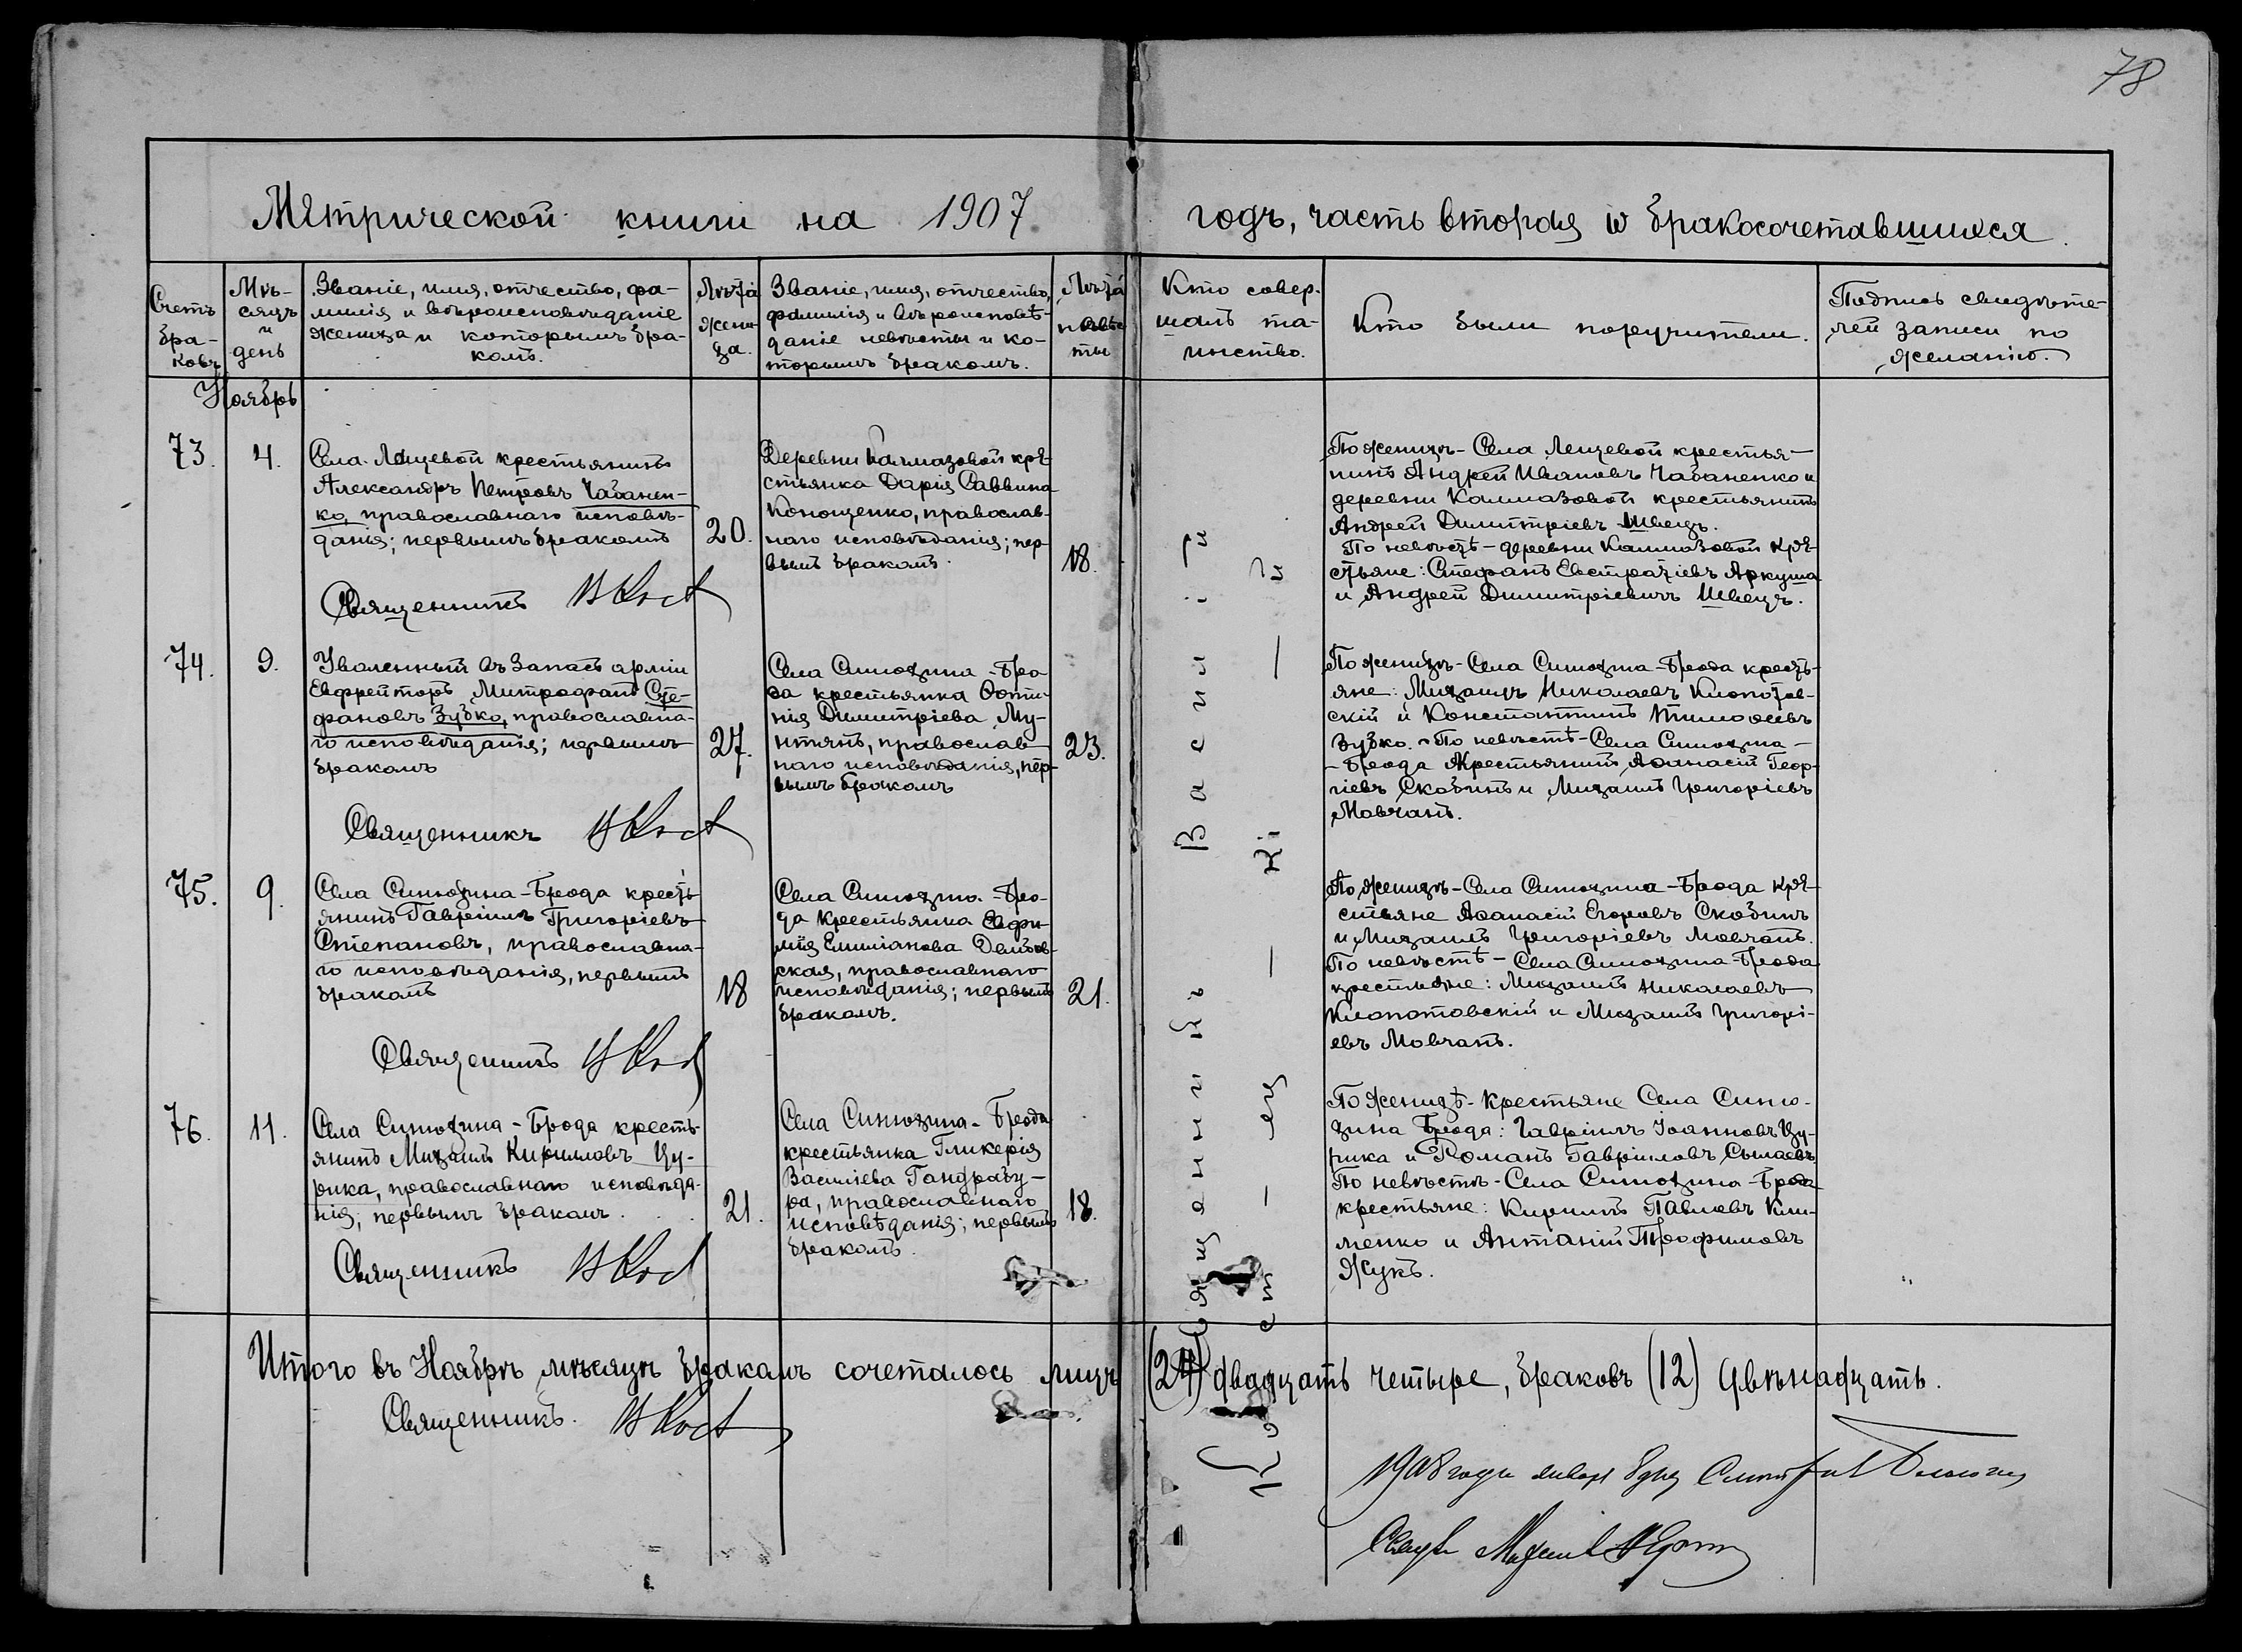 78
Метрической книги на 1907 годъ, часть вторая о бракосочетавшихся.
Счетъ
бра-
ковъ
Мѣ-
сяцъ
и
день
Званіе, имя, отчество, фа-
милія и вѣроисповѣданіе
жениха и которымъ бра-
комъ.
Лѣта
жени-
ха.
Званіе, имя, отчество,
фамилія и вѣроисповѣ-
даніе невѣсты и ко-
торымъ бракомъ.
Лѣта
невѣс
ты
Кто совер-
шалъ та-
инство.
Кто были поручители.
Подпись свидѣте-
лей записи по
желанію.
Ноябрь
73.
4.
Села Лещевой крестьянинъ
Александръ Петровъ Чабанен-
ко, православнаго исповѣ-
данія; первымъ бракомъ
20.
Священникъ
Деревни Калмазовой кре-
стьянка Дарія Саввина
Конощенко, православ-
наго исповѣданія; пер-
вымъ бракомъ.
18.
По женихѣ - Села Лещевой крестья-
нинъ Андрей Ивановъ Чабаненко и
деревни Калмазовой крестьянинъ
Андрей Димитріевъ Швецъ.
По невѣстѣ - деревни Калмазовой кре-
стьяне: Стефанъ Евстратіевъ Аркуша
и Андрей Димитріевичъ Швецъ.
74.
9.
Уволенный въ запасъ арміи
Ефрейторъ Митрофанъ Сте-
фановъ Зубко, православна-
го исповѣданія; первымъ
бракомъ
27.
Священникъ
Села Синюхина - Бро-
да крестьянка Фоти-
нія Димитріева Му-
нтянъ, православ-
наго исповѣданія, пер-
вымъ бракомъ
23.
По женихѣ - Села Синюхина - Брода кресть-
яне: Михаилъ Николаевъ Клопотов-
скій и Константинъ Тимофеевъ
Зубко. - По невѣстѣ - Села Синюхина -
- Брода Крестьянинъ Афанасій Геор-
гіевъ Скобинъ и Михаилъ Григоріевъ
Мовчанъ.
75.
9.
Села Синюхина - Брода кресть
янинъ Гавріилъ Григоріевъ
Степановъ, православна-
го исповѣданія, первымъ
бракомъ
18
Священникъ
Села Синюхина - Бро-
да крестьянка Евфи-
мія Емиліанова
ская, православнаго
исповѣданія; первымъ
бракомъ.
21.
По женихѣ - Села Синюхина - Брода кре-
стьяне Афанасій Егоровъ Скобинъ
и Михаилъ Григоріевъ Мовчанъ.
По невѣстѣ - Села Синюхина - Брода
крестьяне: Михаилъ Николаевъ
Клопотовскій и Михаилъ Григорі-
евъ Мовчанъ.
76.
11.
Села Синюхина - Брода кресть-
янинъ Михаилъ Кирилловъ Цу-
рика, православнаго исповѣда-
нія; первымъ бракомъ.
21.
Священникъ
Села Синюхина - Брода
крестьянка Гликерія
Василіева Гандрабу-
ра, православнаго
исповѣданія; первымъ
бракомъ.
18.
По женихѣ - крестьяне Села Синю-
хина Брода: Гавріилъ Іоанновъ Цу-
рика и Романъ Гавріиловъ
По невѣстѣ - Села Синюхина - Брода
крестьяне: Кириллъ Павловъ Кли-
менко и Антаній Трофимовъ
Жукъ.
Священникъ Василій
Итого въ Ноябрѣ мѣсяцѣ бракомъ сочеталось лицъ (24) двадцать четыре, браковъ (12) двѣнадцать.
Священникъ.
1908 года января 8 дня